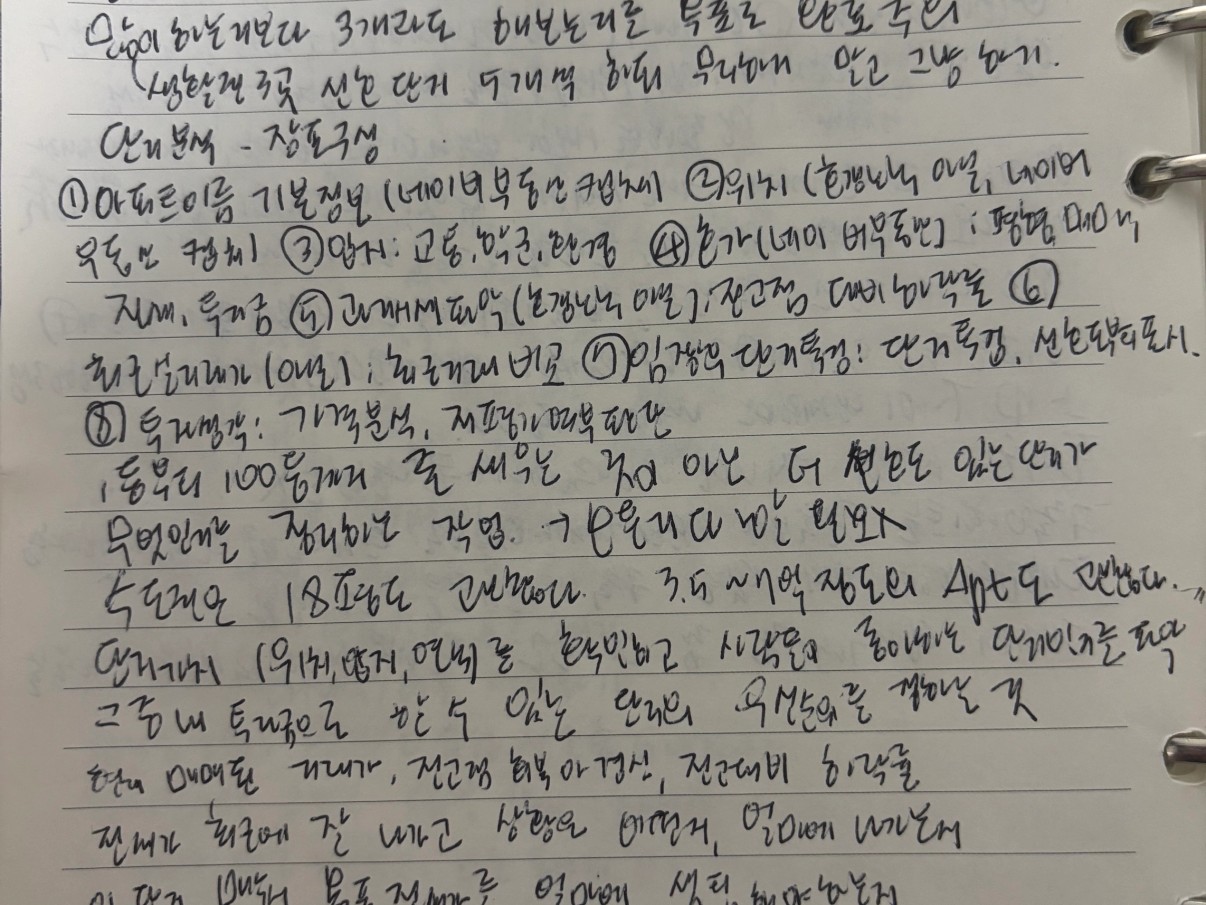 많이 하는거보다 3개라도 해보는거를 목표로
생활권 3곳 선호 단지 5개씩 하되 무리하지 말고 그냥 하기.
단지분석 - 장표구성
①아파트이름 기본정보 (네이버부동산캡쳐) ②위치 (호갱노노 아실, 네이버
부동산 캡쳐) ③입지: 교통, 학군, 환경 ④호가(네이버부동산) : 평형, 매매,
전세, 투자금 ⑤과거시세파악(호갱노노 아실): 전고점 대비 하락률 ⑥
최근실거래가(아실): 최근거래 비교 ⑦임장의 단지특징: 단지특징, 선호도부터표시.
⑧투자생각: 가격분석, 저평가여부판단
1등부터 100등까지 줄 세우는 것이 아닌 더 선호도 있는 단지가
무엇인지를 정리하는 작업. → 모른다 말 필요X
수도권은 18평도 괜찮다. 3.5~4억 정도의 Apt도 괜찮다.
단지가치 (위치, 입지, 연식)를 확인하고 사람들이 좋아하는 단지인지를 파악
그 중 내 투자금으로 할 수 있는 단지의 우선순위를 정하는 것
현재 매매된 거래가, 전고점 회복 아 갱신, 전고대비 하락률
전세가 최근에 잘 나가고 상황은 어떤지, 얼마에 나가는지
이 단지 매수시 목표 전세가를 얼마에 해야하는지